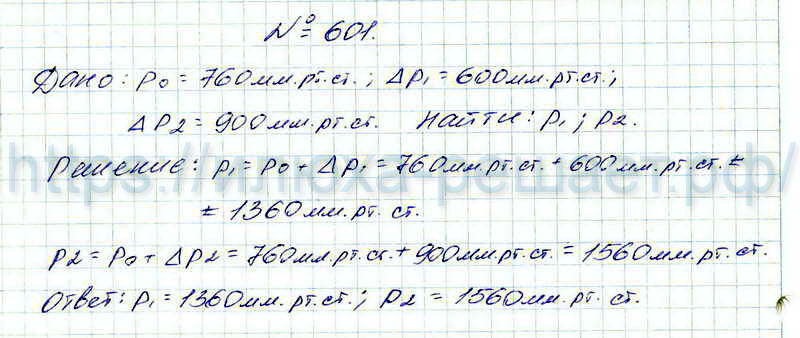 № 601.
Дано: p₀ = 760 мм.рт.ст.; Δp₁ = 600 мм.рт.ст.;
Δp2 = 900 мм.рт.ст. Найти: p₁; p2.
https://илюха-решает.рф/
Решение: p₁ = p₀ + Δp₁ = 760 мм.рт.ст. + 600 мм.рт.ст. =
= 1360 мм.рт.ст.
p2 = p₀ + Δp2 = 760 мм.рт.ст. + 900 мм.рт.ст. = 1560 мм.рт.ст.
Ответ: p₁ = 1360 мм.рт.ст.; p2 = 1560 мм.рт.ст.